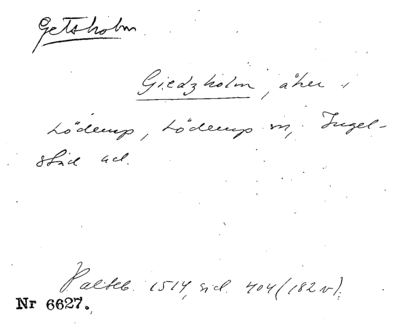 Getsholm
Giedzholm, åker i
Löderup, Löderup sn, Ingel-
stad hd.
Palteb. 1514, sid. 404 (182 v).
Nr 6627.